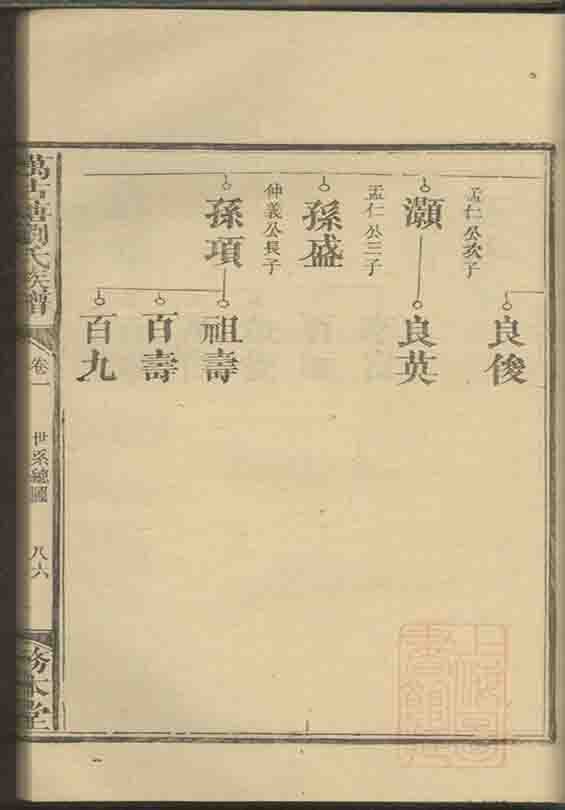 孟仁公次子
灝
孟仁公三子
孫盛
仲義公長子
孫項
良俊
良英
祖壽
百壽
百九
劉氏族譜
卷一
世系總圖
八六
務本堂
上海圖書館藏